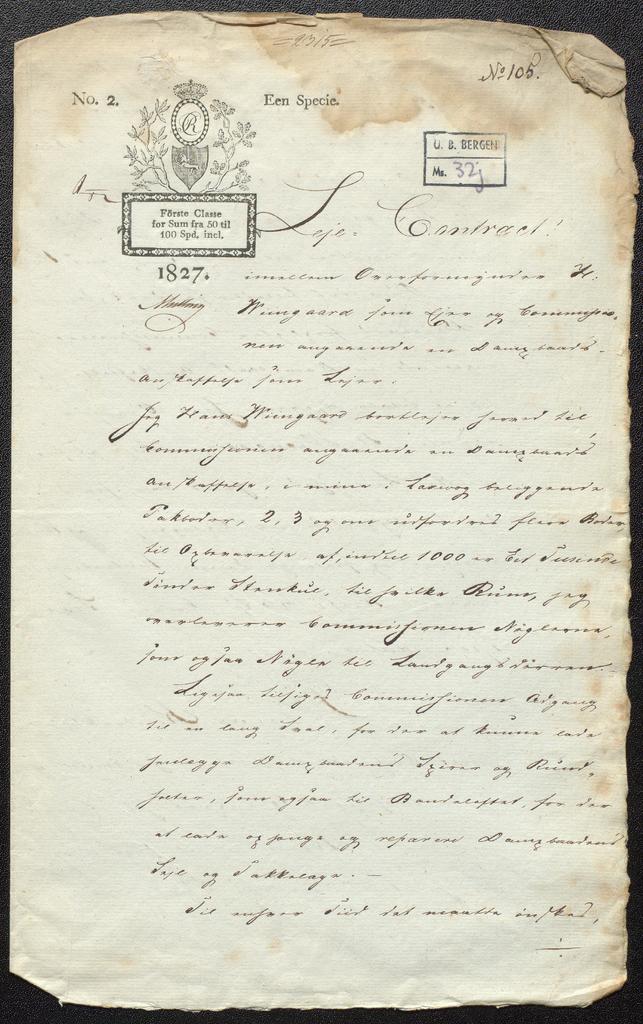 =2315=
No 105.
No. 2.
Een Specie.
CR
U. B. BERGEN
Ms. 32j
Förste Classe
for Sum fra 50 til
100 Spd. incl.
1827.
Leje- Contract!
imellem Overformynder H:
Wiingaard som Ejer og Commissio-
nen angaaende en Dampbaads-
Anskaffelse som Lejer.
Jeg Hans Wiingaard bortlejer herved til
Commissionen angaaende en Dampbaads
Anskaffelse, i mine i Laxevog beliggende
Pakboder, 2, 3 og om udfordres flere Boder,
til Opbevarelse af, indtil 1000 er Eet Tusende
Tønder Steenkul, til hvilke Rum, jeg
overleverer Commissionen Nøglerne,
som ogsaa Nøgle til Landgangsdörren.
Ligesaa tilsiges Commissionen Adgang
til en lang Sval, for der at kunne lade
henlegge Dampbaadens Spirer og Rund-
holter, som ogsaa til Bandeloftet, for der
at lade ophænge og reparere Dampbaadens
Sejl og Takkelage. —
Til enhver Tiid det maatte önskes,